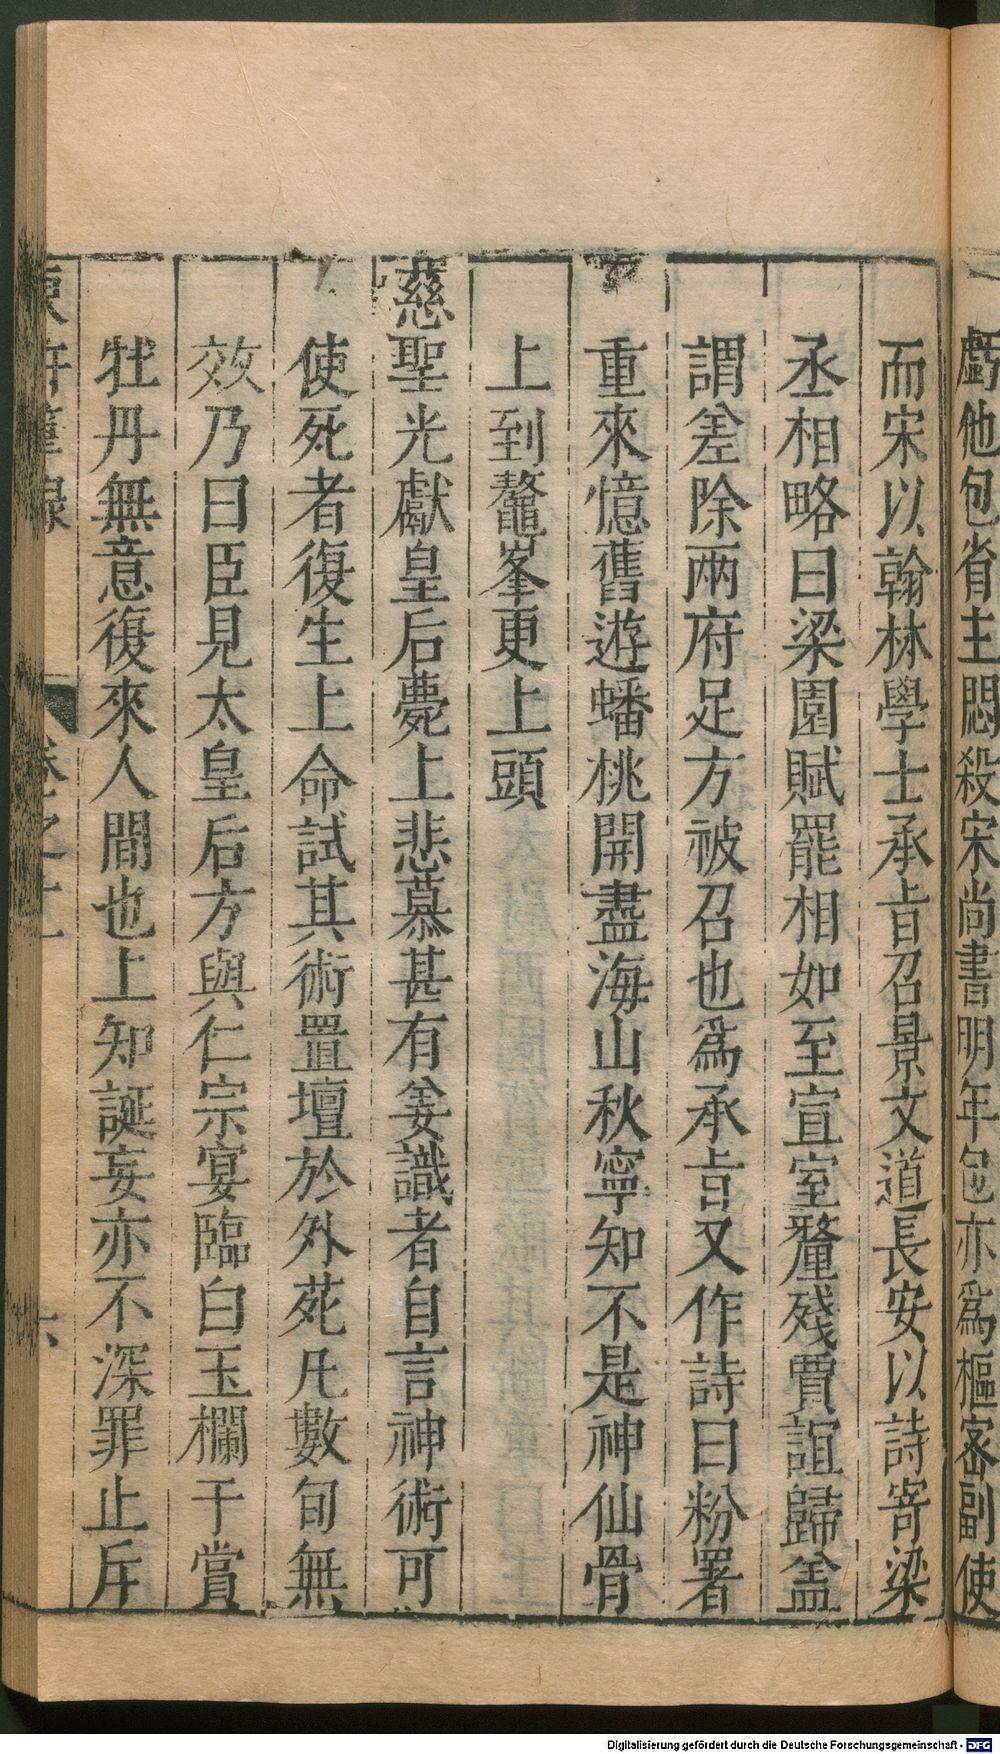 戲他包省主悶殺宋尚書明年包亦爲樞密副使
而宋以翰林學士承旨召景文道長安以詩寄梁
丞相略曰梁園賦罷相如至宣室釐殘賈誼歸盖
謂差除兩府足方被召也爲承旨又作詩曰粉署
重來憶舊遊蟠桃開盡海山秋寧知不是神仙骨
上到鼇峯更上頭
慈聖光獻皇后薨上悲慕甚有姜識者自言神術可
使死者復生上命試其術置壇於外苑凡數旬無
效乃曰臣見太皇后方與仁宗宴臨白玉欄干賞
牡丹無意復來人間也上知誕妄亦不深罪止斥
東軒筆錄
卷之
六
Digitalisierung gefördert durch die Deutsche Forschungsgemeinschaft - DFG